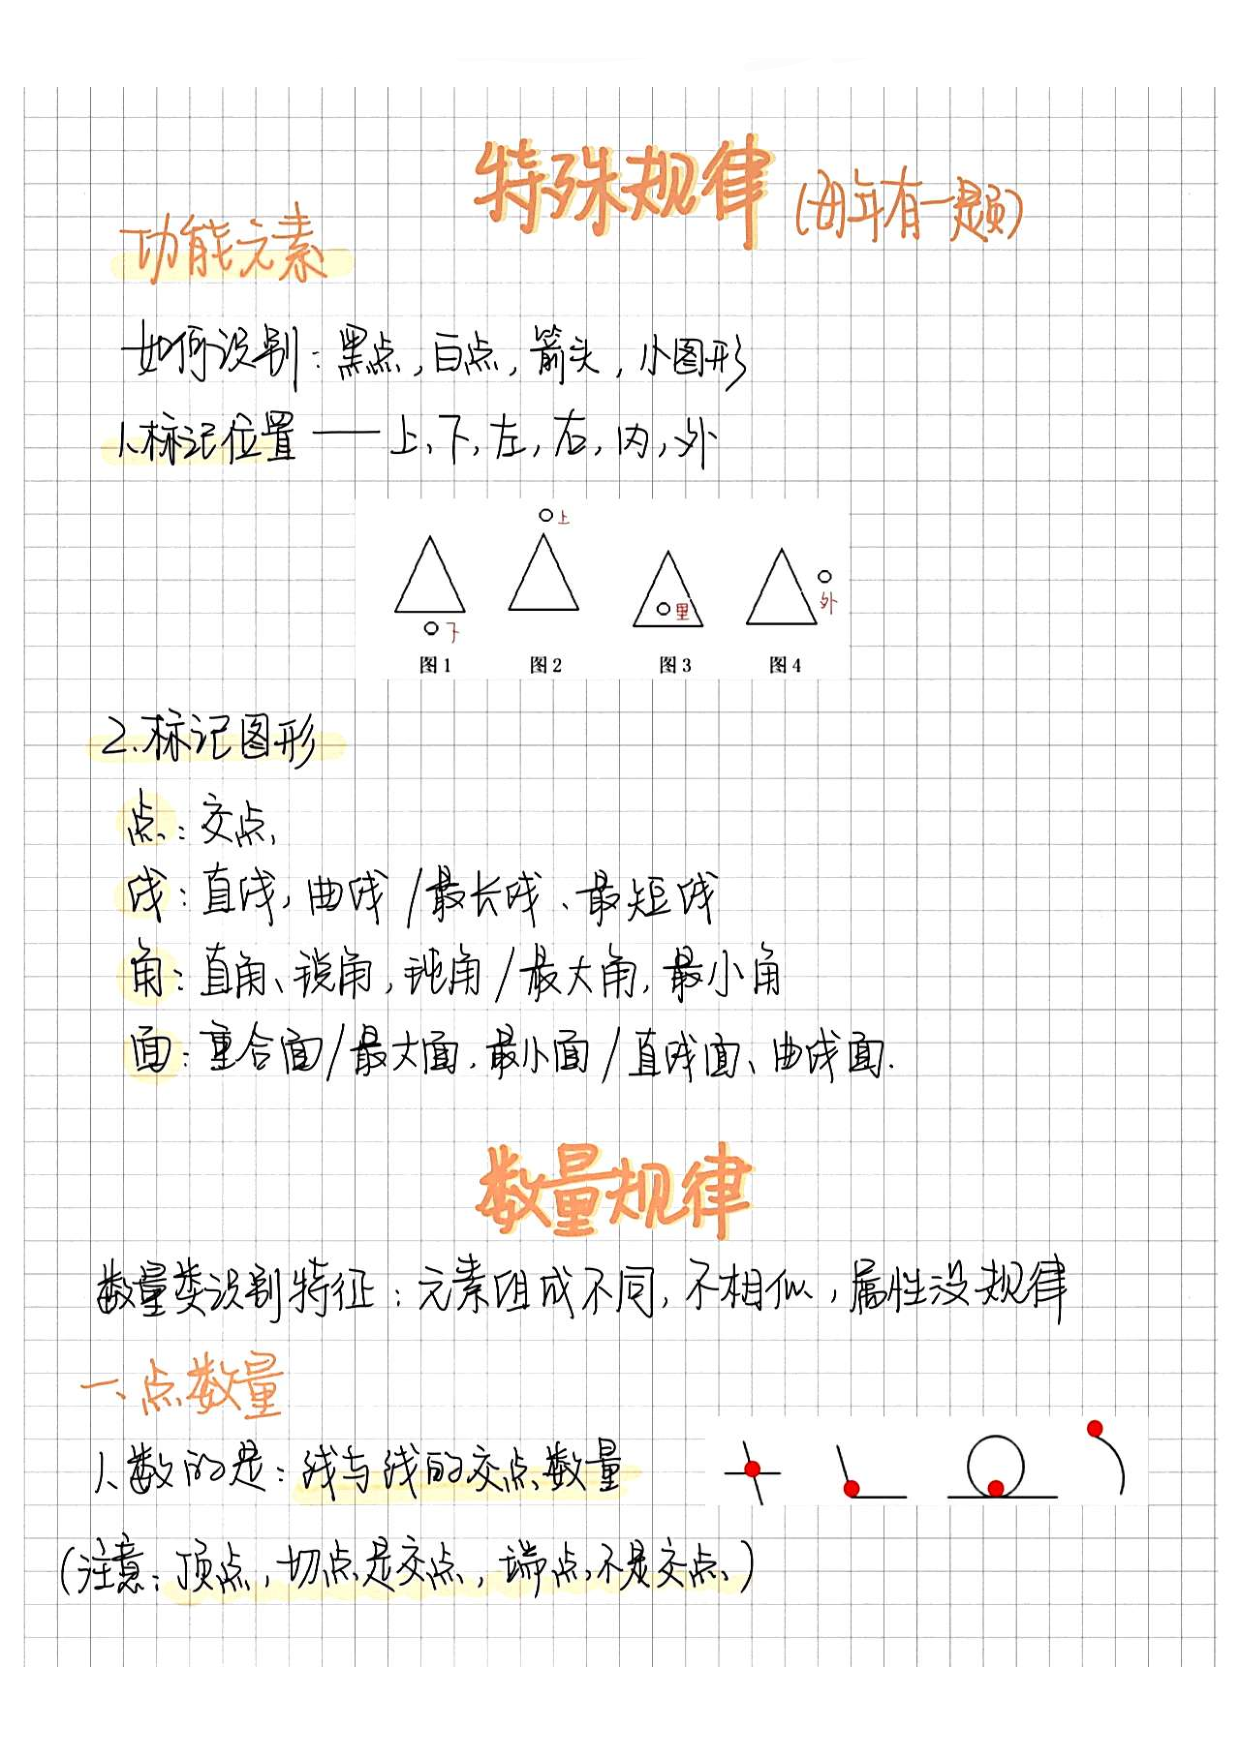 特殊规律(每年有一题)
功能元素
如何识别：黑点，白点，箭头，小图形
1、标记位置——上、下，左，右，内，外
上
下
里
外
图1 图2 图3 图4
2.标记图形
点：交点，
线：直线，曲线/最长线、最短线
角：直角、锐角，钝角/最大角，最小角
面：重合面/最大面，最小面/直线面、曲线面.
数量规律
数量类识别特征：元素组成不同，不相似，属性没规律
一、点数量
1、数的是：线与线的交点数量
(注意：顶点，切点是交点，端点不是交点)